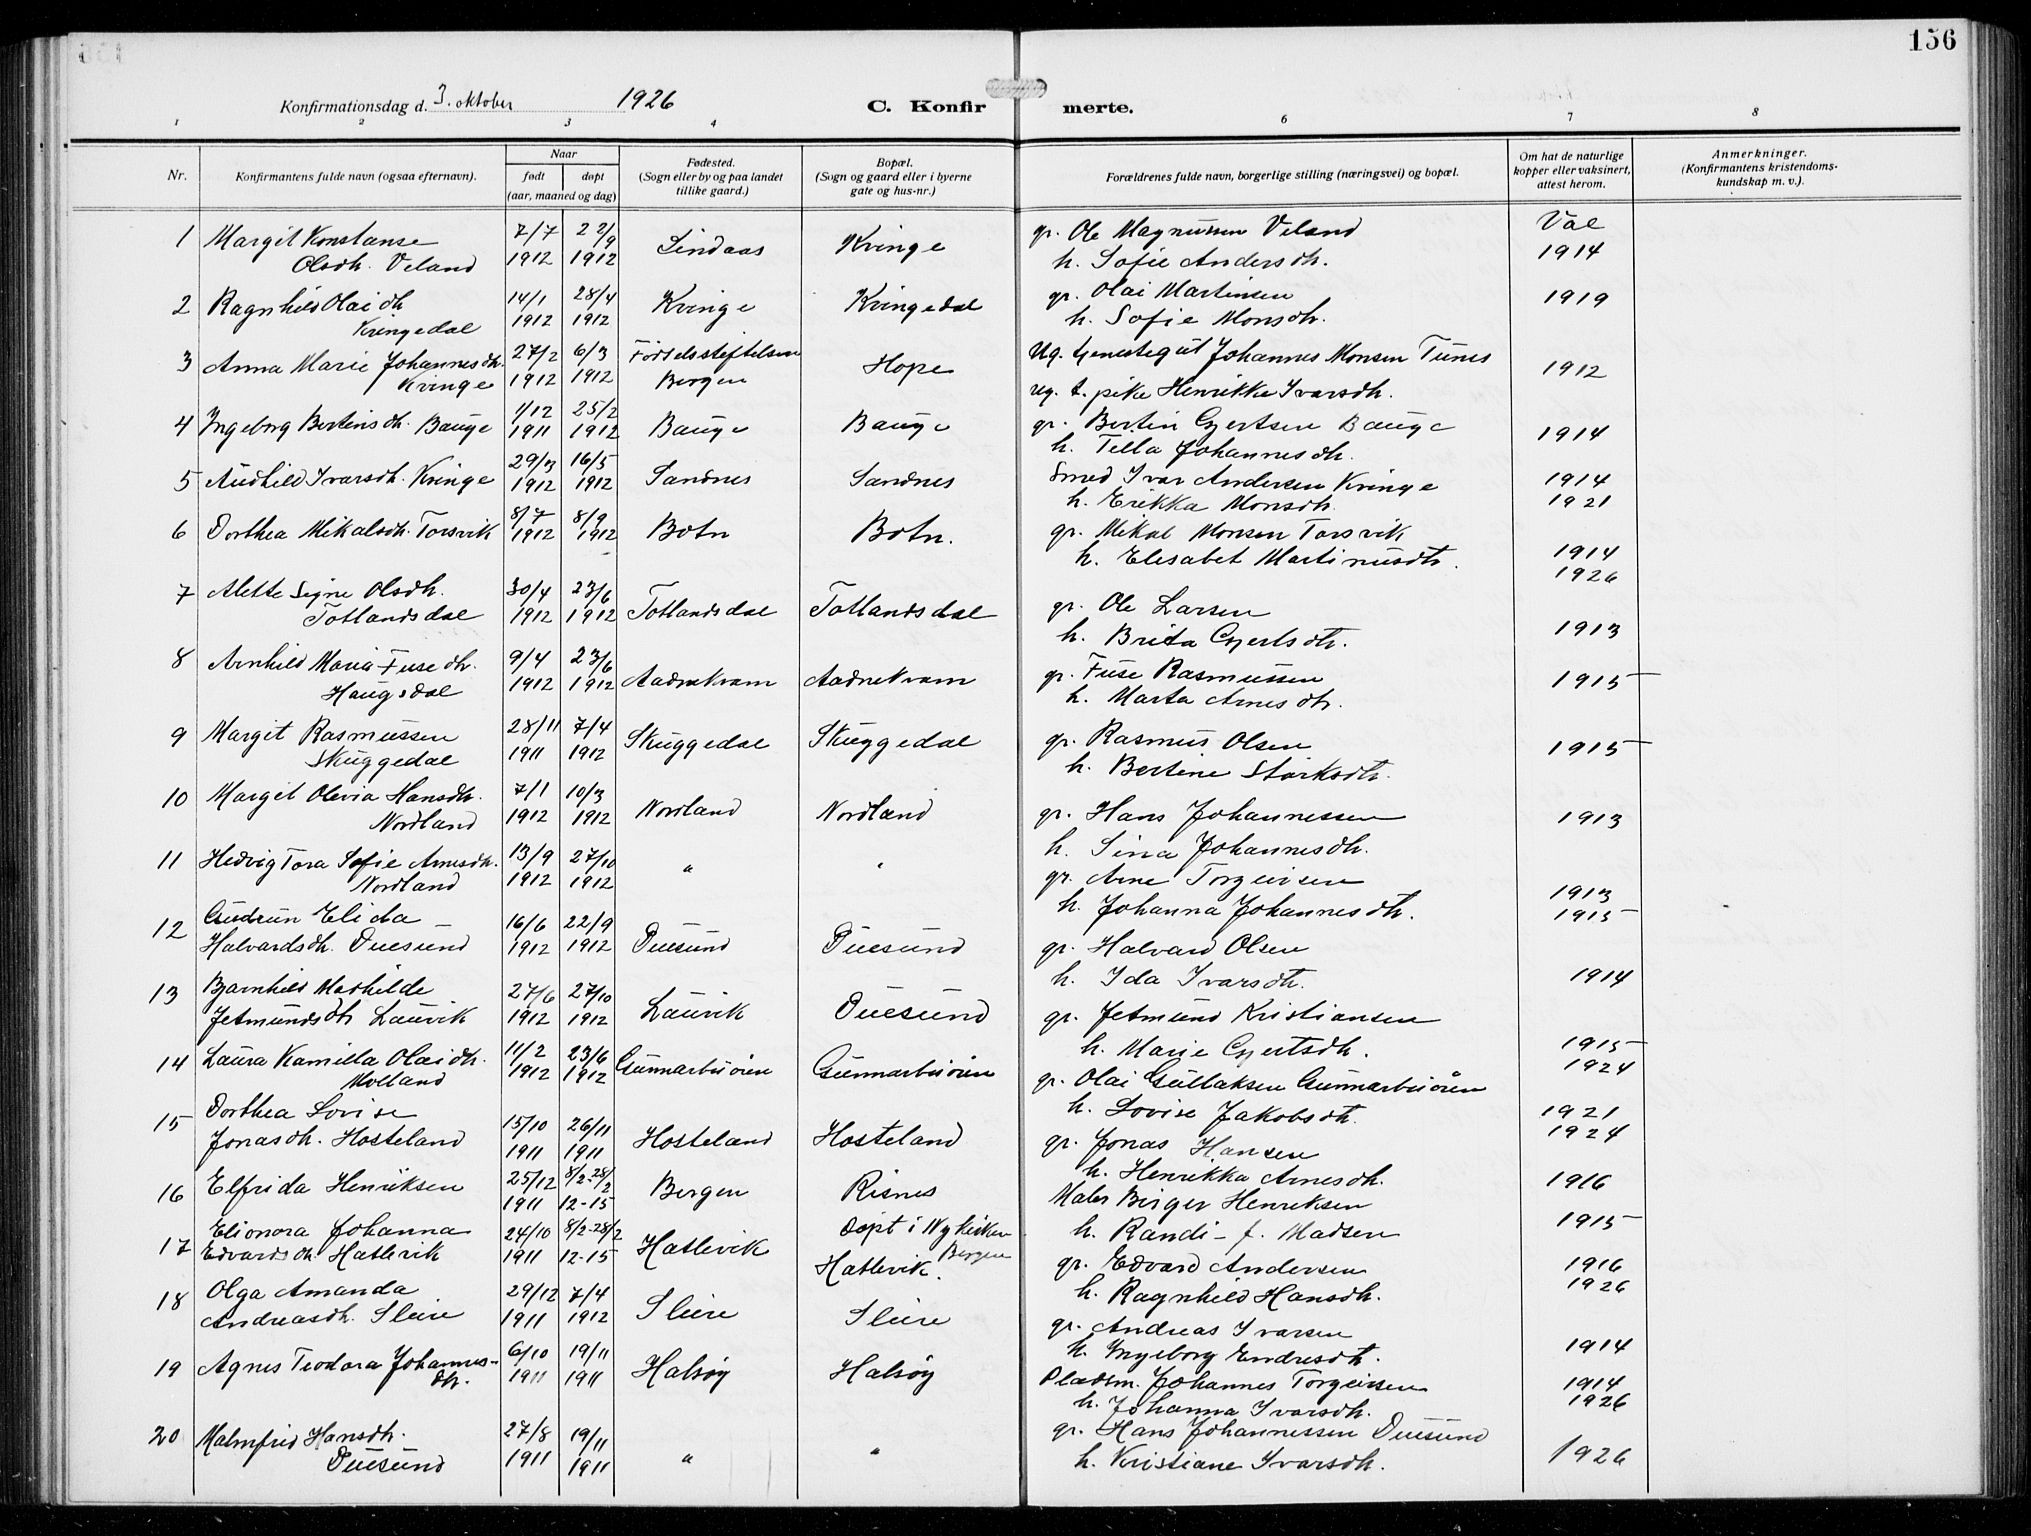 156
Konfirmationsdag d. 3. oktober 1926 C. Konfirmerte.
1 2 3 4 6 7 8
Nr. Konfirmantens fulde navn (ogsaa efternavn). Naar født døpt (aar, maaned og dag) Fødested. (Sogn eller by og paa landet tillike gaard.) Bopæl. (Sogn og gaard eller i byerne gate og hus-nr.) Forældrenes fulde navn, borgerlige stilling (næringsvei) og bopæl. Om hat de naturlige kopper eller vaksinert, attest herom. Anmerkninger. (Konfirmantens kristendoms-kundskap m. v.).
1 Margit Konstanse 7/7 22/9 Lindaas Kvinge gr. Ole Magnussen Veland Vac
Olsdh. Veland 1912 1912 h. Sofie Andersdh. 1914
2 Ragnhild Olaidh 14/1 28/4 Kvinge Kvingedal gr. Olai Martinsen 1919
Kvingedal 1912 1912 h. Sofie Monsdh.
3 Anna Marie Johannesdh. 27/2 6/3 Fødselsstiftelsen Hope Ug. tjenestegut Johannes Monsen Tunes 1912
Kvinge 1912 1912 Bergen ug. t. pike Henrikke Ivarsdh.
4 Ingeborg Bertinsdh. Bauge 1/12 25/2 Bauge Bauge gr. Bertin Gjertsen Bauge 1914
1911 1912 h. Tella Johannesdh.
5 Audhild Ivarsdh. Kvinge 29/3 16/5 Sandnes Sandnes Smed Ivar Andersen Kvinge 1914
1912 1912 h. Erikka Monsdh. 1921
6 Dorthea Mikalsdh. Torsvik 8/7 8/9 Botn Botn. gr. Mikal Monsen Torsvik
1912 1912 h. Elisabet Martinusdtr. 1914
1926
7 Alette Signe Olsdh. 30/4 23/6 Totlandsdal Totlandsdal gr. Ole Larsen
Totlandsdal 1912 1912 h. Brita Gjertsdtr. 1913
8 Arnhild Maria Fusedh. 9/4 23/6 Aadnekvam Aadnekvam gr. Fuse Rasmussen 1915
Haugsdal 1912 1912 h. Marta Arnesdtr.
9 Margit Rasmussen 28/11 7/4 Skuggedal Skuggedal gr. Rasmus Olsen 1915
Skuggedal 1911 1912 h. Bertine Størksdtr.
10 Margit Olivia Hansdh. 7/1 10/3 Nordland Nordland gr. Hans Johannessen 1913
Nordland 1912 1912 h. Sina Johannesdh.
11 Hedvig Tora Sofie Arnesdh. 13/9 27/10 " " gr. Arne Torgeirsen 1913
Nordland 1912 1912 h. Johanna Johannesdh. 1915
12 Gudrun Elida 16/6 22/9 Duesund Duesund gr. Halvard Olsen
Halvardsdh. Duesund 1912 1912 h. Ida Ivarsdtr. 1914
13 Bjarnhild Mathilde 27/6 27/10 Lauvik Duesund gr. Jetmund Kristiansen
Jetmundsdtr Lauvik 1912 1912 h. Marie Gjertsdh. 1915
14 Laura Kamilla Olaidh. 11/2 23/6 Gunnarbuøren Gunnarbuøien gr. Olai Gullaksen Gunnarbuøien 1924
Molland 1912 1912 h. Lovise Jakobsdtr. 1921
15 Dorthea Lovise 15/10 26/11 Hosteland Hosteland gr. Jonas Hansen 1924
Jonasdh. Hosteland 1911 1911 h. Henrikka Arnesdh.
16 Elfrida Henriksen 25/12 8/2-28/2 Bergen Risnes Maler Birger Henriksen 1916
1911 12-15 h. Randi - f. Madsen 1915
17 Elionora Johanna 24/10 8/2-28/2 Hatlevik Døpt i Nykirken Bergen gr. Edvard Andersen 1916
Edvardsdh. Hatlevik 1911 12-15 Hatlevik. h. Ragnhild Hansdh. 1926
18 Olga Amanda 29/12 7/4 Sleire Sleire gr. Andreas Ivarsen
Andreasdh. Sleire 1911 1912 h. Ingeborg Endresdtr. 1914
19 Agnes Teodora Johannes- 6/10 19/11 Halsøy Halsøy Pladsm. Johannes Torgeirsen 1914
dh. 1911 1911 h. Johanna Ivarsdh. 1926
20 Malmfrid Hansdh. 27/8 19/11 " " gr. Hans Johannessen Duesund 1926
Duesund 1911 1911 h. Kristiane Ivarsdh.